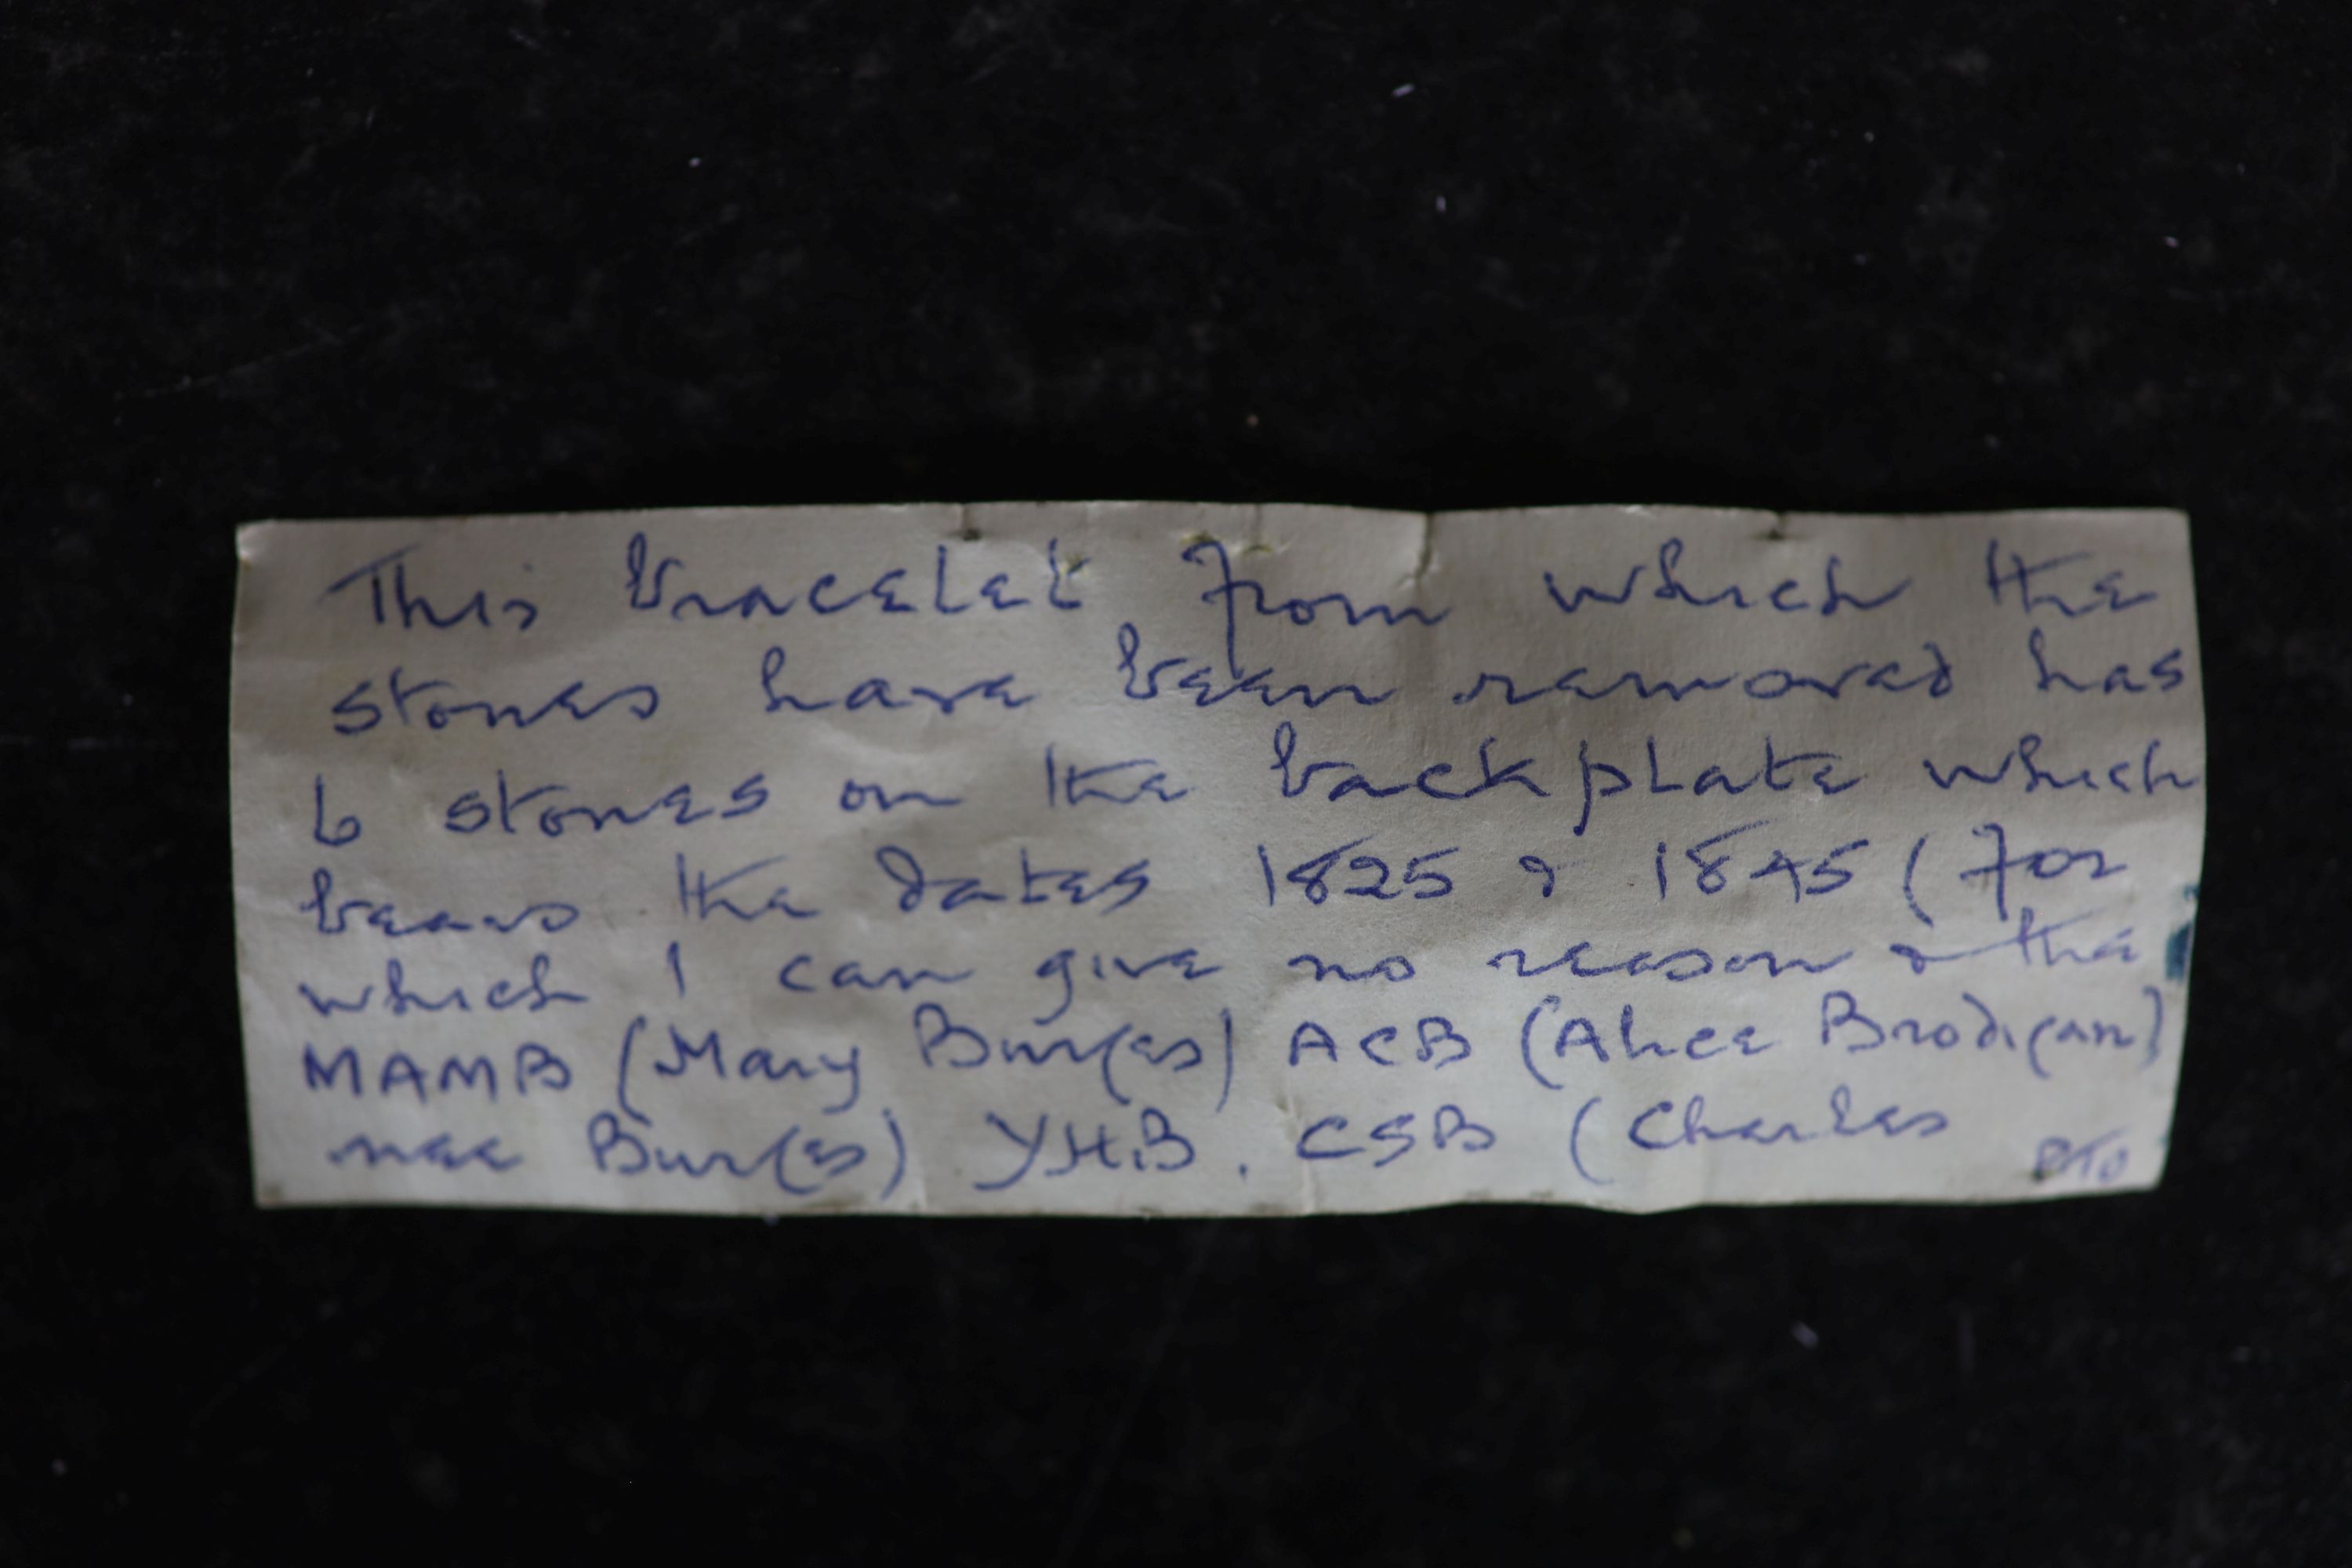 This bracelet from which the
stones have been removed has
6 stones on the backplate which
bears the dates 1825 & 1845 (for
which I can give no reason & the
MAMB (Mary Burges) ACB (Alice Brodigan)
nee Burges) YHB. CSB (Charles
PTO